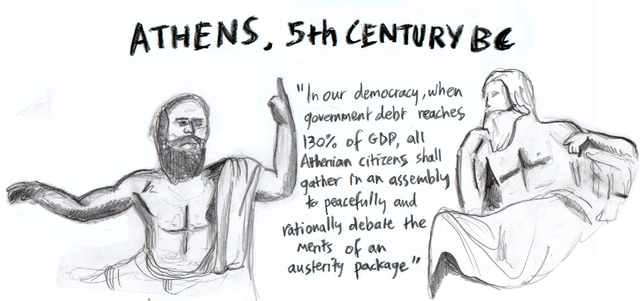 ATHENS, 5th CENTURY BC
"In our democracy, when
government debt reaches
130% of GDP, all
Athenian citizens shall
gather in an assembly
to peacefully and
rationally debate the
merits of an
austerity package"